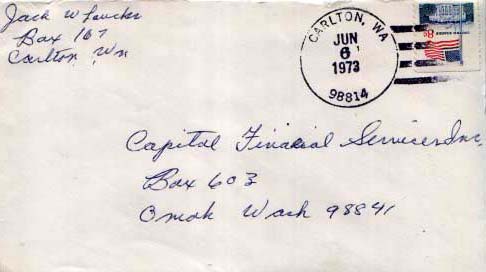 Jack W Loucks
Box 167
Carlton, Wn
CARLTON, WA
JUN
6
1973
98814
8c
Capital Finacial Services Inc,
Box 603
Omak Wash 98841